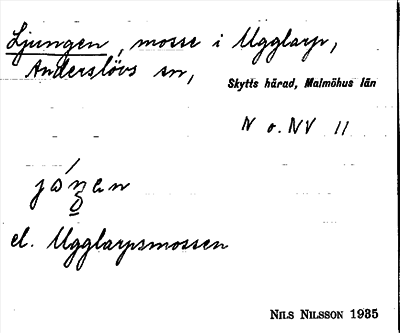 Ljungen, mosse i Ugglarp,
Anderslövs sn,
Skytts härad, Malmöhus län
N o. NV 11
el. Ugglarpsmossen
NILS NILSSON 1935